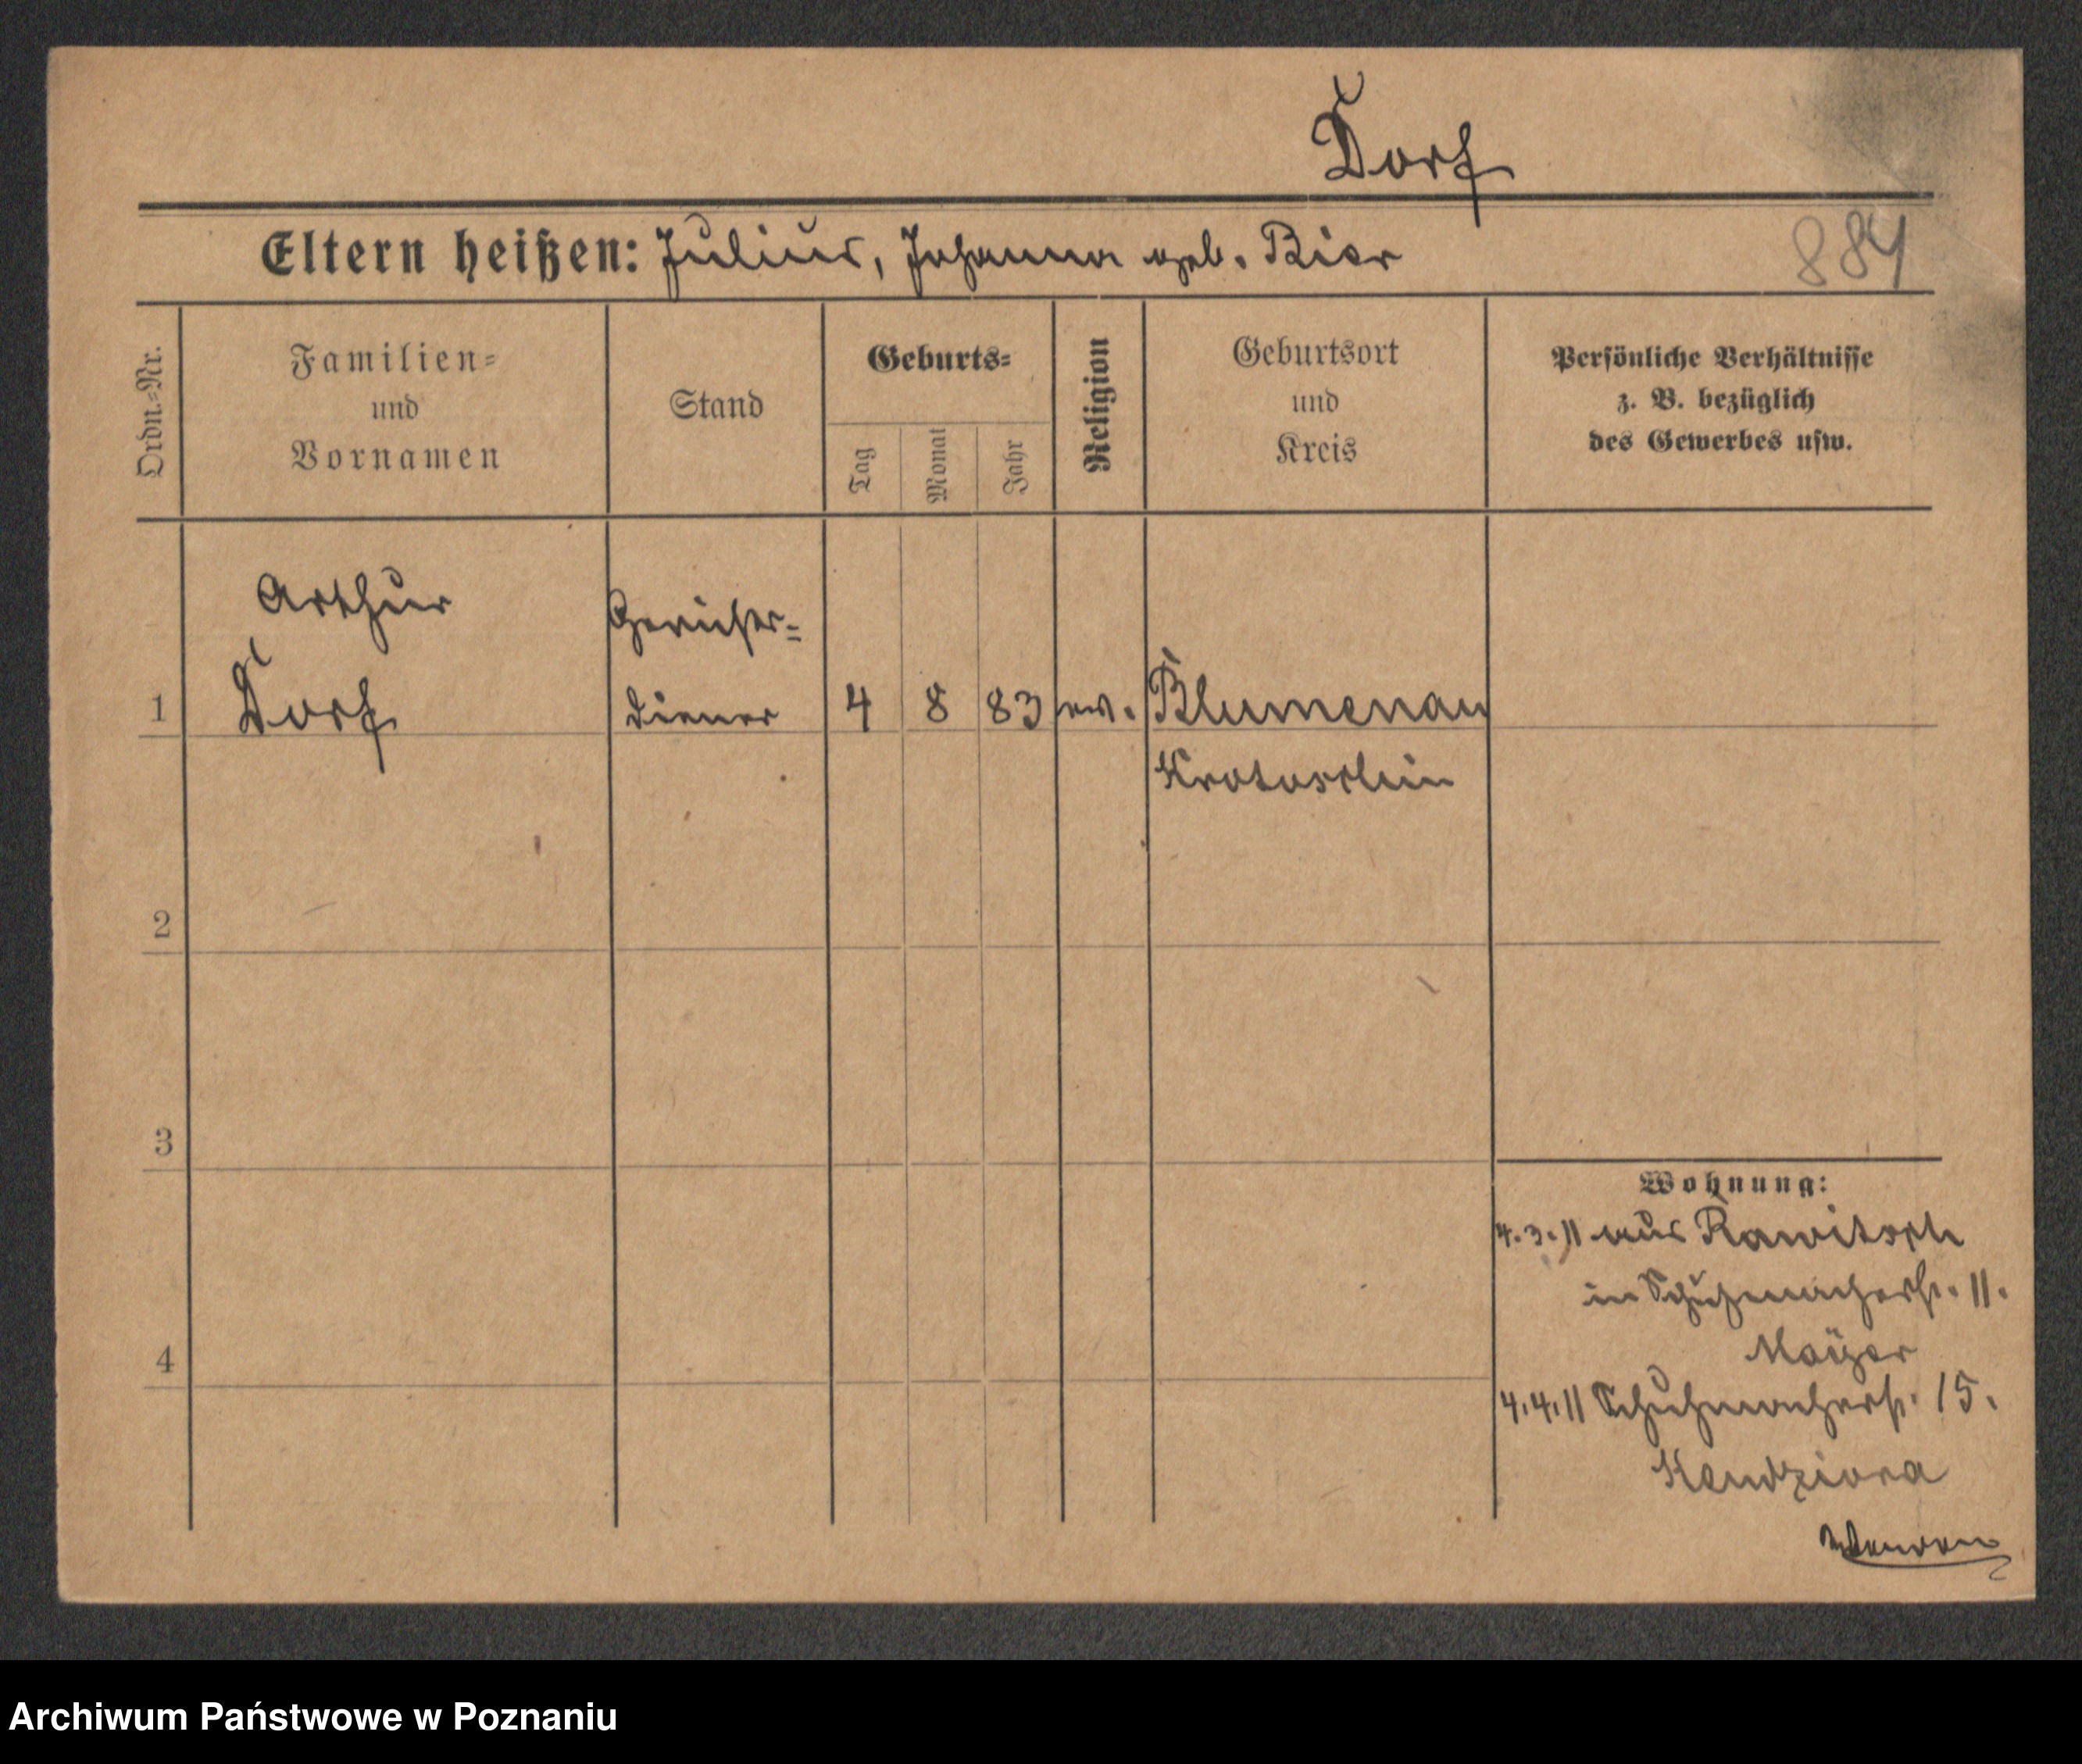 Dorf
Eltern heißen: Julius, Johanna geb. Bier
884
Ordn.=Nr.
Familien=
und
Vornamen
Stand
Geburts=
Tag
Monat
Jahr
Religion
Geburtsort
und
Kreis
Persönliche Verhältnisse
z. B. bezüglich
des Gewerbes usw.
Arthur
Gerichts=
1 Dorf diener 4 8 83 ev. Blumenau
Krotoschin
2
3
4
Wohnung:
4.3.11 aus Rawitsch
in Schuhmacherst. 11.
Mayer
4.4.11 Schuhmacherst. 15.
Kendziora
Archiwum Państwowe w Poznaniu